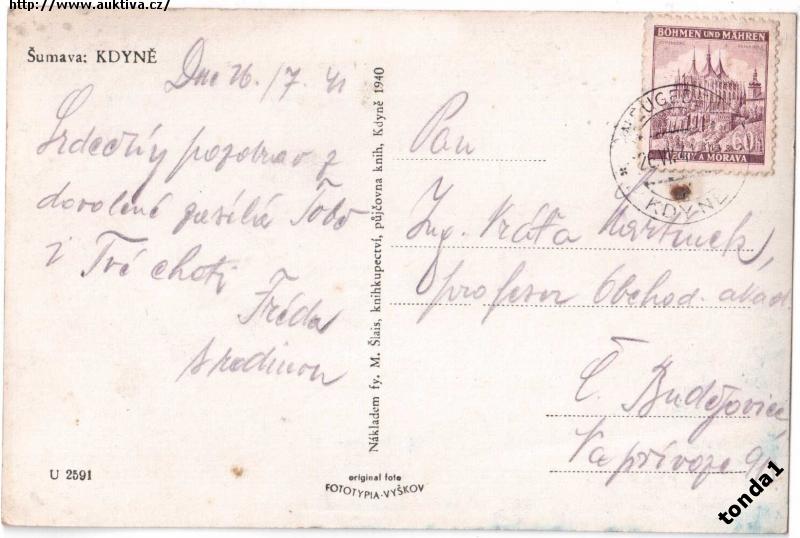 http://www.auktiva.cz/
Šumava: KDYNĚ
Dne 26./7. 41
Srdečný pozdrav z
dovolené zasílá Tobě
i Tvé choti
Fréda
s rodinou
U 2591
Nákladem fy. M. Šlais, knihkupectví, půjčovna knih, Kdyně 1940
original foto
FOTOTYPIA-VYŠKOV
BÖHMEN UND MÄHREN
ČECHY A MORAVA
KDYNĚ
Pan
Ing. Vráťa Martínek,
profesor Obchod. akad.
Č. Budějovice
Na přívoze
tonda1